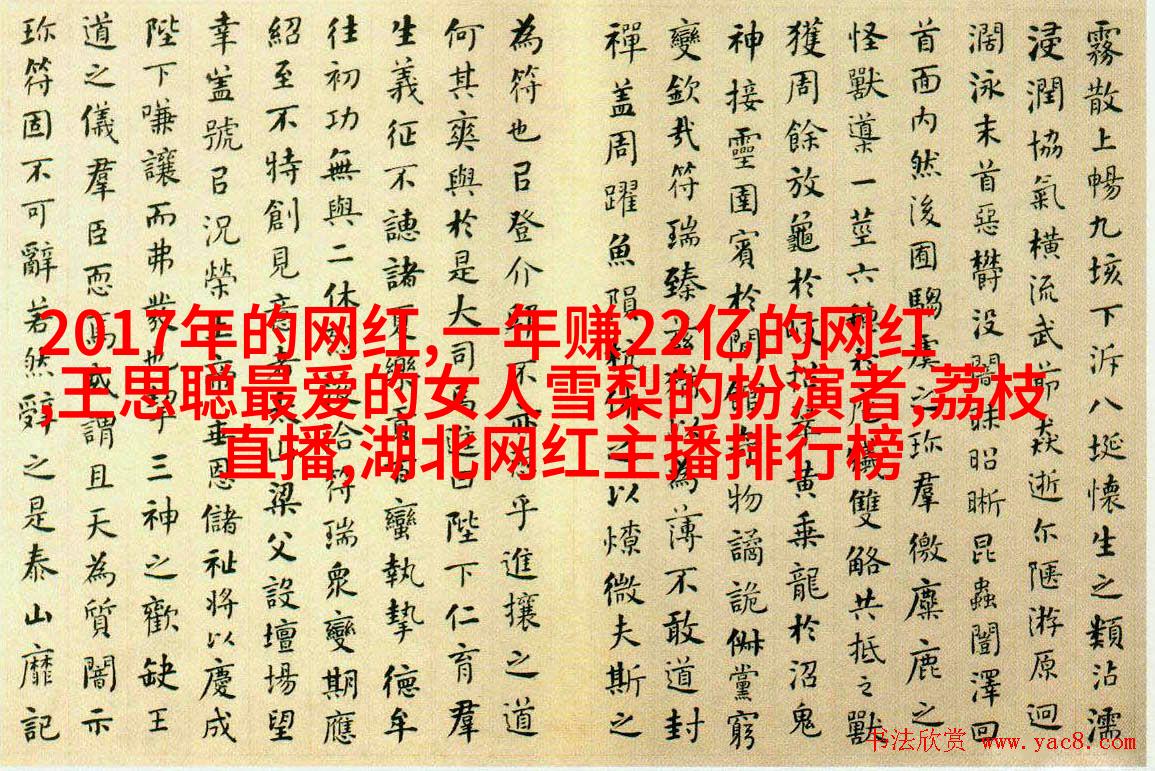 霧散上暢九垓下泝八埏懷生之類沾濡
浸潤協氣橫流武節猋逝尓陿游原迥
濶泳末首惡欝没闇昧昭晰昆蟲闓澤回
首面内然後囿騶虞之珍羣徼麋鹿之
怪獸導一莖六穗於庖犧雙觡共抵之獸
獲周餘放龜於岐招翠黄乗龍於沼鬼
神接靈圉賓於閒館奇物譎詭俶儻窮
變欽哉符瑞臻兹猶以為薄不敢道封
禪盖周躍魚隕杭休之以燎微夫斯之
為符也㠯登介丘不亦恧乎進攘之道
何其爽與於是大司馬進曰陛下仁育羣
生義征不譓諸夏樂貢百蠻執摯德牟
往初功無與二休烈浹洽符瑞衆變期應
紹至不特創見意者泰山梁父設壇場望
幸盖號㠯況榮上帝垂恩儲祉將以慶成
陛下嗛讓而弗發也挈三神之歡缺王
道之儀羣臣恧焉或謂且天為質闇示
珍符固不可辭若然辭之是泰山靡記
2017年的网红,一年赚22亿的网红
,王思聪最爱的女人雪梨的扮演者,荔枝
直播,湖北网红主播排行榜
书法欣赏 www.yac8.com